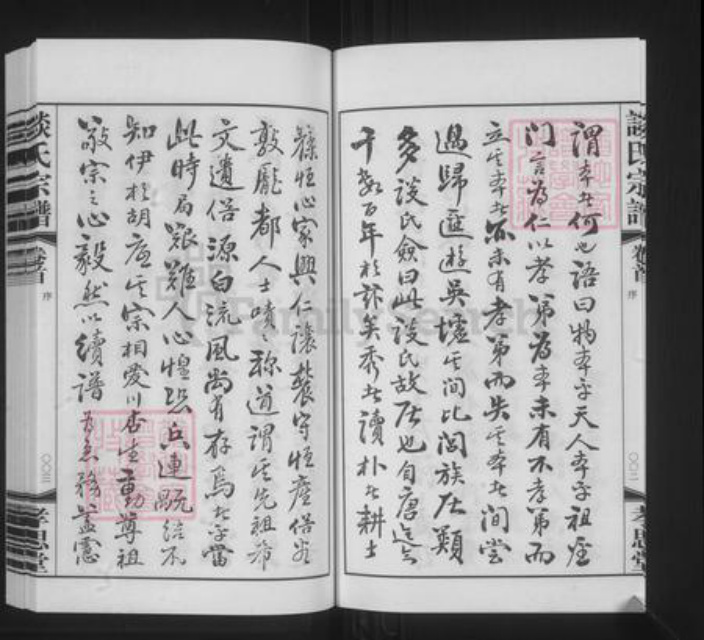 謂本者何也語曰物本乎天人本乎祖聖
門言為仁以孝弟為本未有不孝弟而
立其本者亦未有孝弟而失其本者間嘗
過歸滙遊吳墟其間比閭族居類
多談氏僉曰此談氏故居也自唐迄今
千數百年於茲矣秀者讀朴者耕士
恒心家興仁讓裝守恒產俗尚
敦龐都人士嘖嘖稱道謂其先祖希
文遺俗源白流風尚有存焉者乎當
此時局艱難人心惶恐兵連結不
知伊於胡底其宗相愛川杏生動尊祖
敬宗之心毅然以續譜為急務蓋憲
談氏宗譜
卷首
序
〇〇二
孝思堂
談氏宗譜
卷首
序
〇〇三
孝思堂
FamilySearch